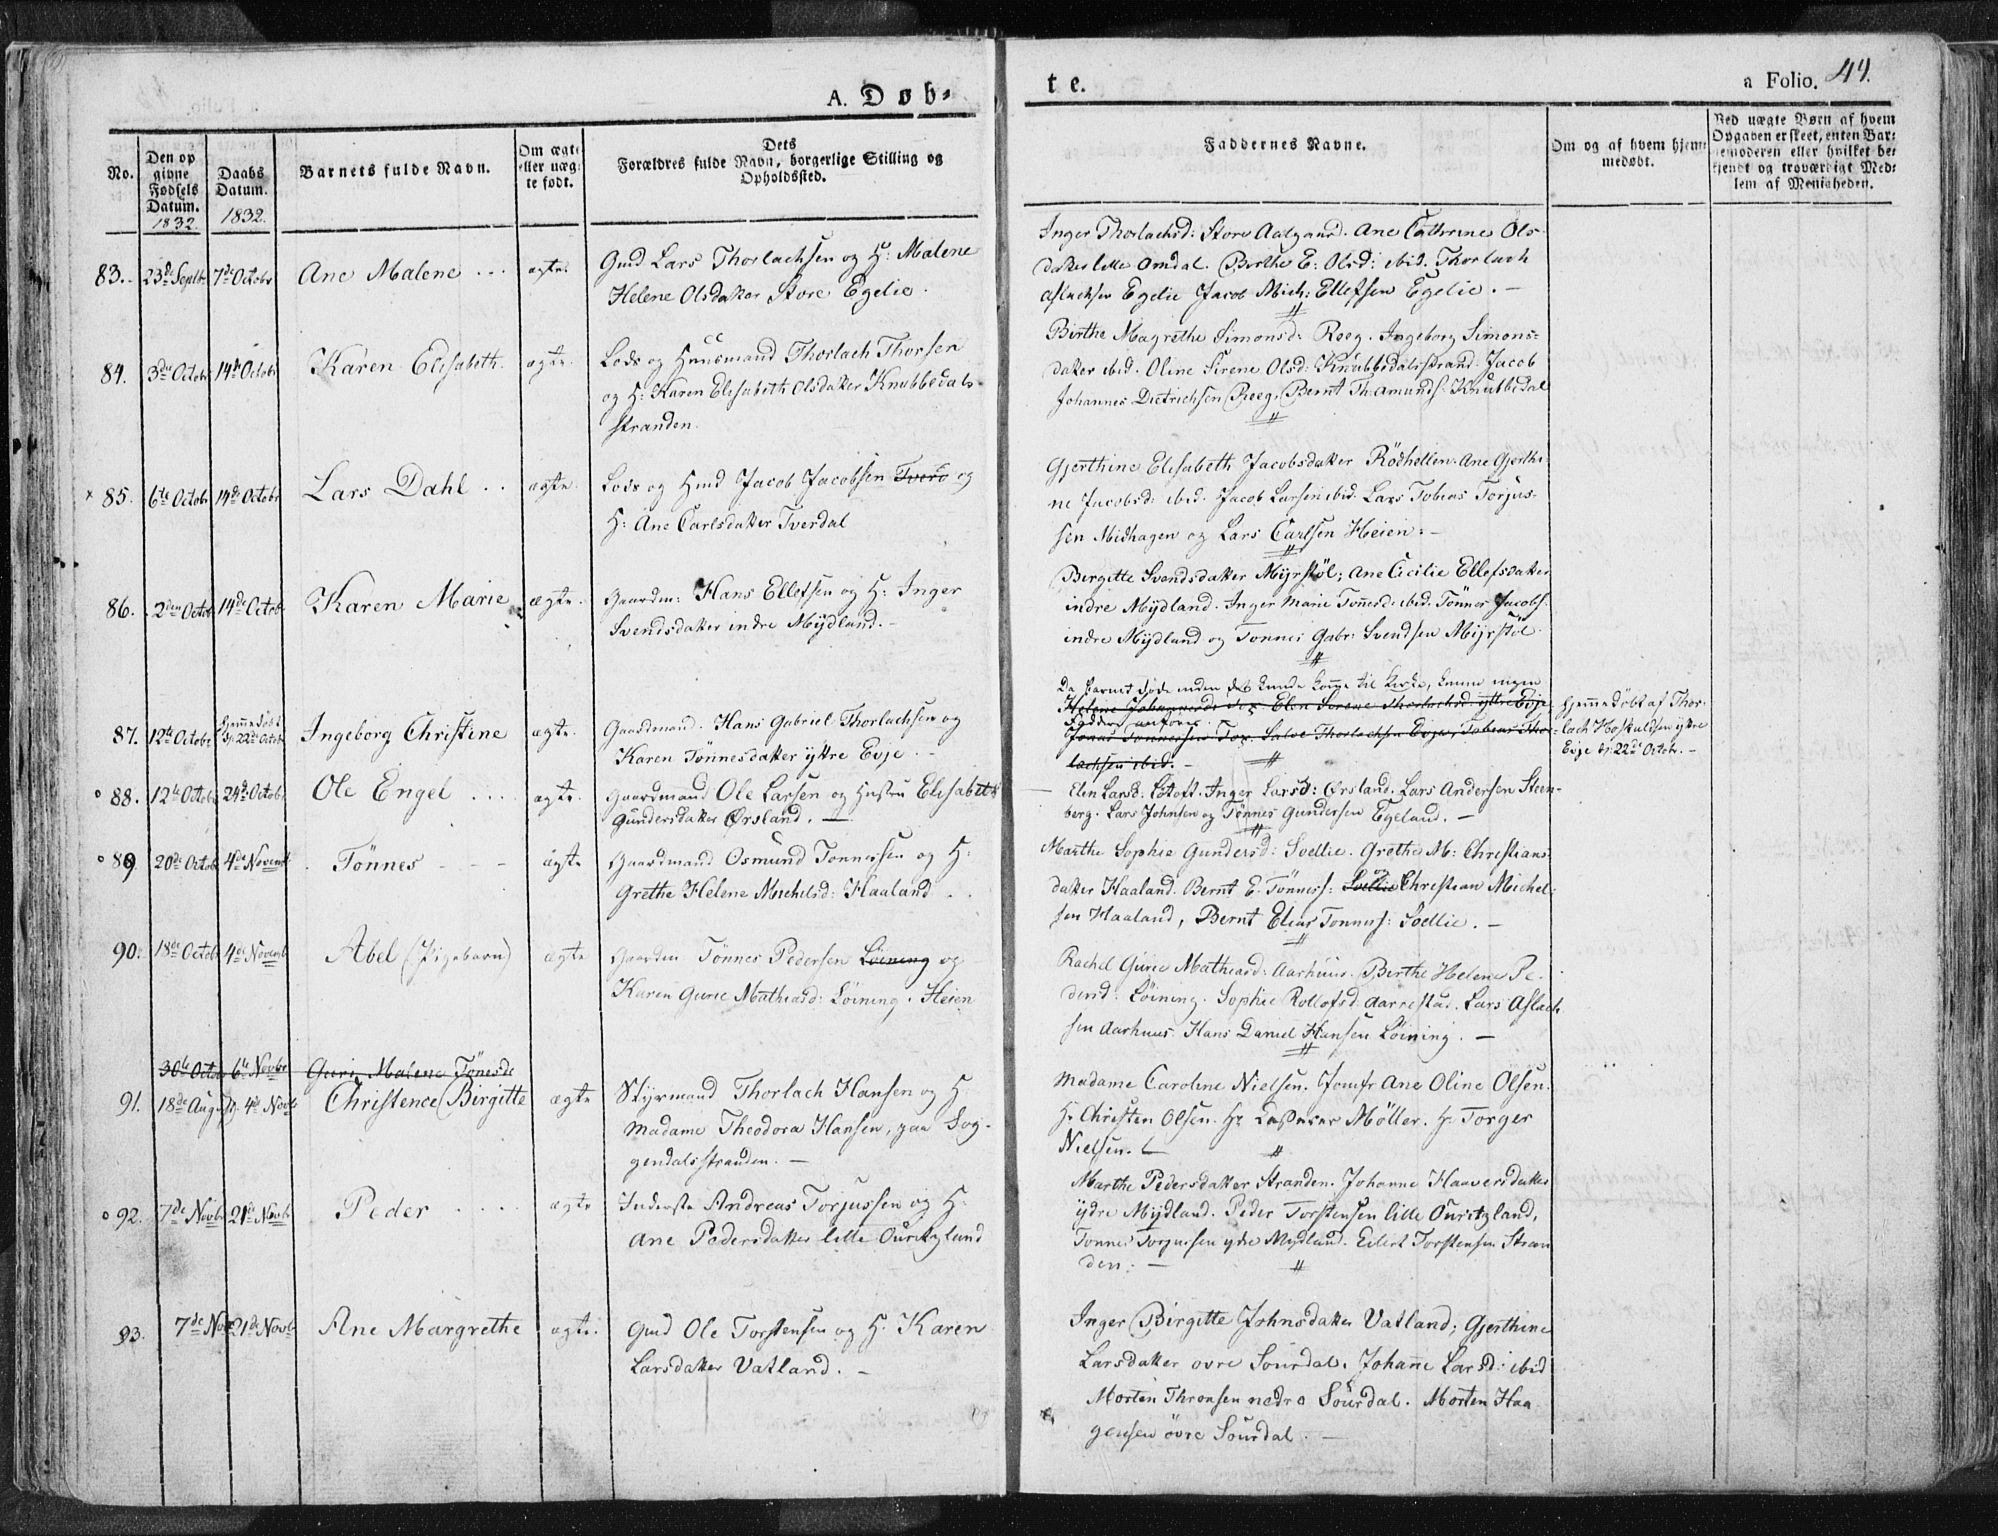 A. Døb-
te.
a Folio. 44.
No.
Den op
givne
Fødsels
Datum.
1832.
Daabs
Datum.
1832.
Barnets fulde Navn.
Om ægte
eller uæg-
te født.
Dets
Forældres fulde Navn, borgerlige Stilling og
Opholdssted.
Faddernes Navne.
Om og af hvem hjem-
medøbt.
Ved uægte Børn af hvem
Opgaven er skeet, enten Bar-
nemoderen eller hvilket be-
kjendt og troværdigt Med-
lem af Menigheden.
83. 23de Septbr 7de Octobr Ane Malene ... ægte.
Gmd Lars Thorlachsen og H: Malene
Helene Olsdatter Store Egelie.
Inger Thorlachsd: Store Aalgaard. Ane Cathrine Ols-
datter lille Omdal. Birthe E: Olsd: ibid. Thorlach
Aslachsen Egelie Jacob Mich: Ellefsen Egelie. -
84. 3die Octobr 14de Octobr Karen Elisabeth. ægte.
Lods og Huusmand Thorlach Thorsen
og H: Karen Elisabeth Olsdatter Knubbedals-
stranden.
Birthe Magrethe Simonsd: Reeg. Ingeborg Simons-
datter ibid. Oline Sirene Olsd: Knubbedalsstrand. Jacob
Johannes Dietrichsen Reeg. Bernt Th: Amunds: Knubbedal
× 85. 6te Octobr 14de Octobr Lars Dahl .. ægte.
Lods og Hmd Jacob Jacobsen Tverd og
H: Ane Carlsdatter Tverdal
Gjerthine Elisabeth Jacobsdatter Rödhellen. Ane Gjerthi-
ne Jacobsd: ibid. Jacob Larsen ibid. Lars Tobias Torjus-
sen Midhagen og Lars Carlsen Heien. -
86. 2den Octobr 14de Octobr Karen Marie ægte.
Gaardm: Hans Ellefsen og H: Inger
Svendsdatter indre Mydland. -
Birgitte Svendsdatter Myrstøl; Ane Cicilie Ellefsdatter
indre Mydland. Inger Marie Tönnesd: ibid. Tönnes Jacobs:
indre Mydland og Tönnes Gabr: Svendsen Myrstöl.
87. 12te Octobr Hjemmedöbt 22de Octobr Ingeborg Christine ægte.
Gaardmand. Hans Gabriel Thorlachsen og
Karen Tönnesdatter yttre Evje -
Da Barnet döde inden det kunde komme til Kirke, kunne ingen
Helene Johannesd: Elen Serene Thorlachsd: yttre Evje
Faddere anföres.
Jonas Tönnesen Salve Thorlachsen Evje, Tobias Thor-
lachsen ibid. -
Hjemmedöbt af Thor-
lach Hoskuldsen yttre
Evje 22de Octobr. -
o 88. 12te Octobr 24de Octobr Ole Engel .... ægte.
Gaardmand Ole Larsen og Hustru Elisabeth
Gundersdatter Ørsland. -
Elen Larsd: Lötoft. Inger Larsd: Ørsland. Lars Andersen Steen-
berg. Lars Johnsen og Tönnes Gundersen Egeland. -
o 89. 20de Octobr 4de Novembr Tönnes - - - ægte
Gaardmand Osmund Tönnesen og H:
Grethe Helene Michelsd: Haaland ..
Marthe Sophie Gundersd: Soellie. Grethe M: Christians-
datter Haaland. Bernt E. Tönness: Soellie Christian Michel-
sen Haaland, Bernt Elias Tönness: Soellie. -
90. 18de Octobr 4de Novembr Abel (Pigebarn) ægte
Gaardm: Tönnes Pedersen Löining og
Karen Gurie Mathiasd: Löining. Heien
Rachel Gurie Mathiasd: Aarhuus. Birthe Helene Pe-
dersd: Löining. Sophie Rollofsd: Aarrestad. Lars Aslach-
sen Aarhuus. Hans Daniel Hansen Löining. -
30te Octobr 6te Novbr Guri Malene Tönesd:
91. 18de August 4de Novbr Christence Birgitte ægte
Styrmand Thorlach Hansen og H:
Madame Theodora Hansen, paa Sog-
gendalsstranden. -
Madame Caroline Nielsen. Jomfr Ane Oline Olsen.
Hr Christen Olsen. Hr Møller. Hr Torger
Nielsen.
o 92. 7de Novbr 21de Novbr Peder .... ægte
Inderste Andreas Torjussen og H:
Ane Pedersdatter lille Ouritzland
Marthe Pedersdatter Stranden. Johanne Haaversdatter
ydre Mydland. Peder Torstensen lille Ouritzland,
Tönnes Torjussen ydre Mydland. Eilert Torstensen Stran-
den. -
93. 7de Nov 21de Novb Ane Margrethe ægte.
Gmd Ole Torstensen og H: Karen
Larsdatter Vatland. -
Inger Birgitte Johnsdatter Vatland; Gjerthine
Larsdatter øvre Sourdal. Johanne Larsd: ibid
Morten Thronsen nedre Sourdal. Morten Haa-
gensen övre Sourdal. -